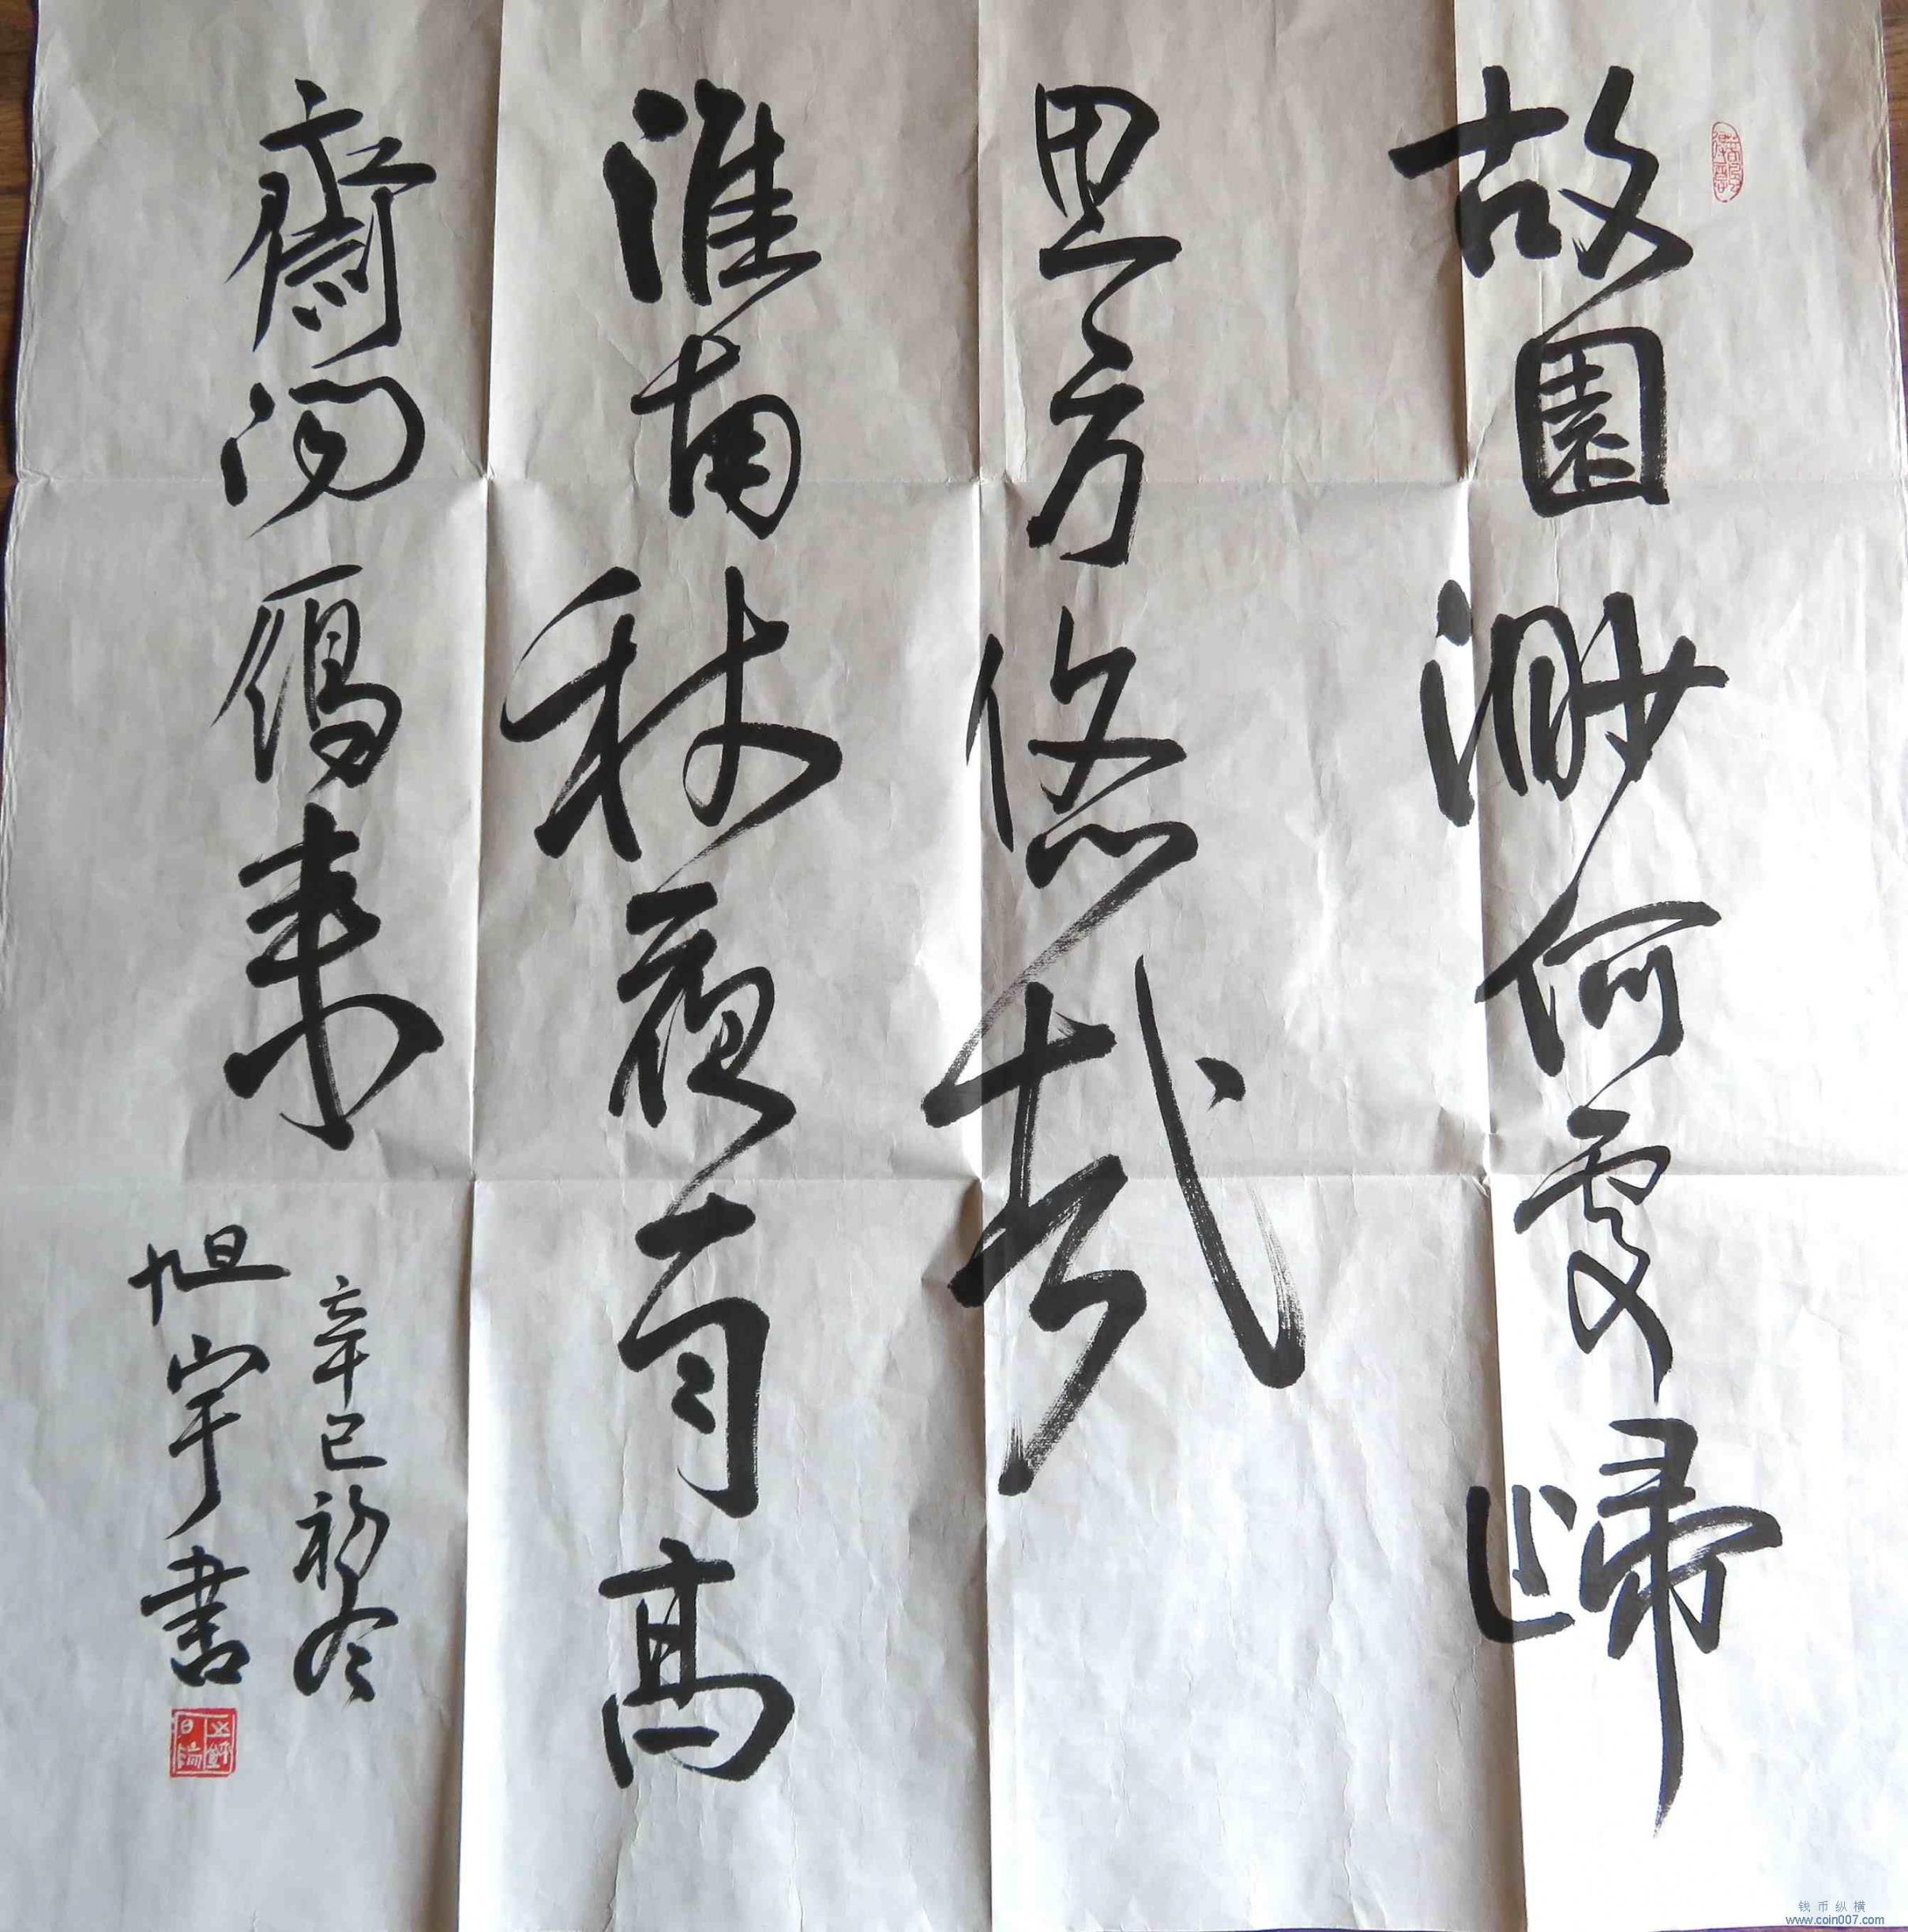 故園渺何處歸
思方悠哉
淮南秋夜雨高
齋聞鴈來
辛巳初冬
旭宇書
钱币纵横
www.coin007.com